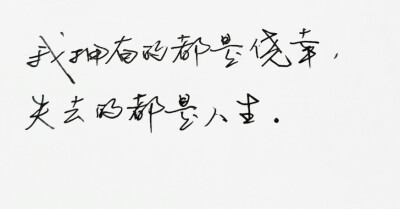 我拥有的都是侥幸,
失去的都是人生.